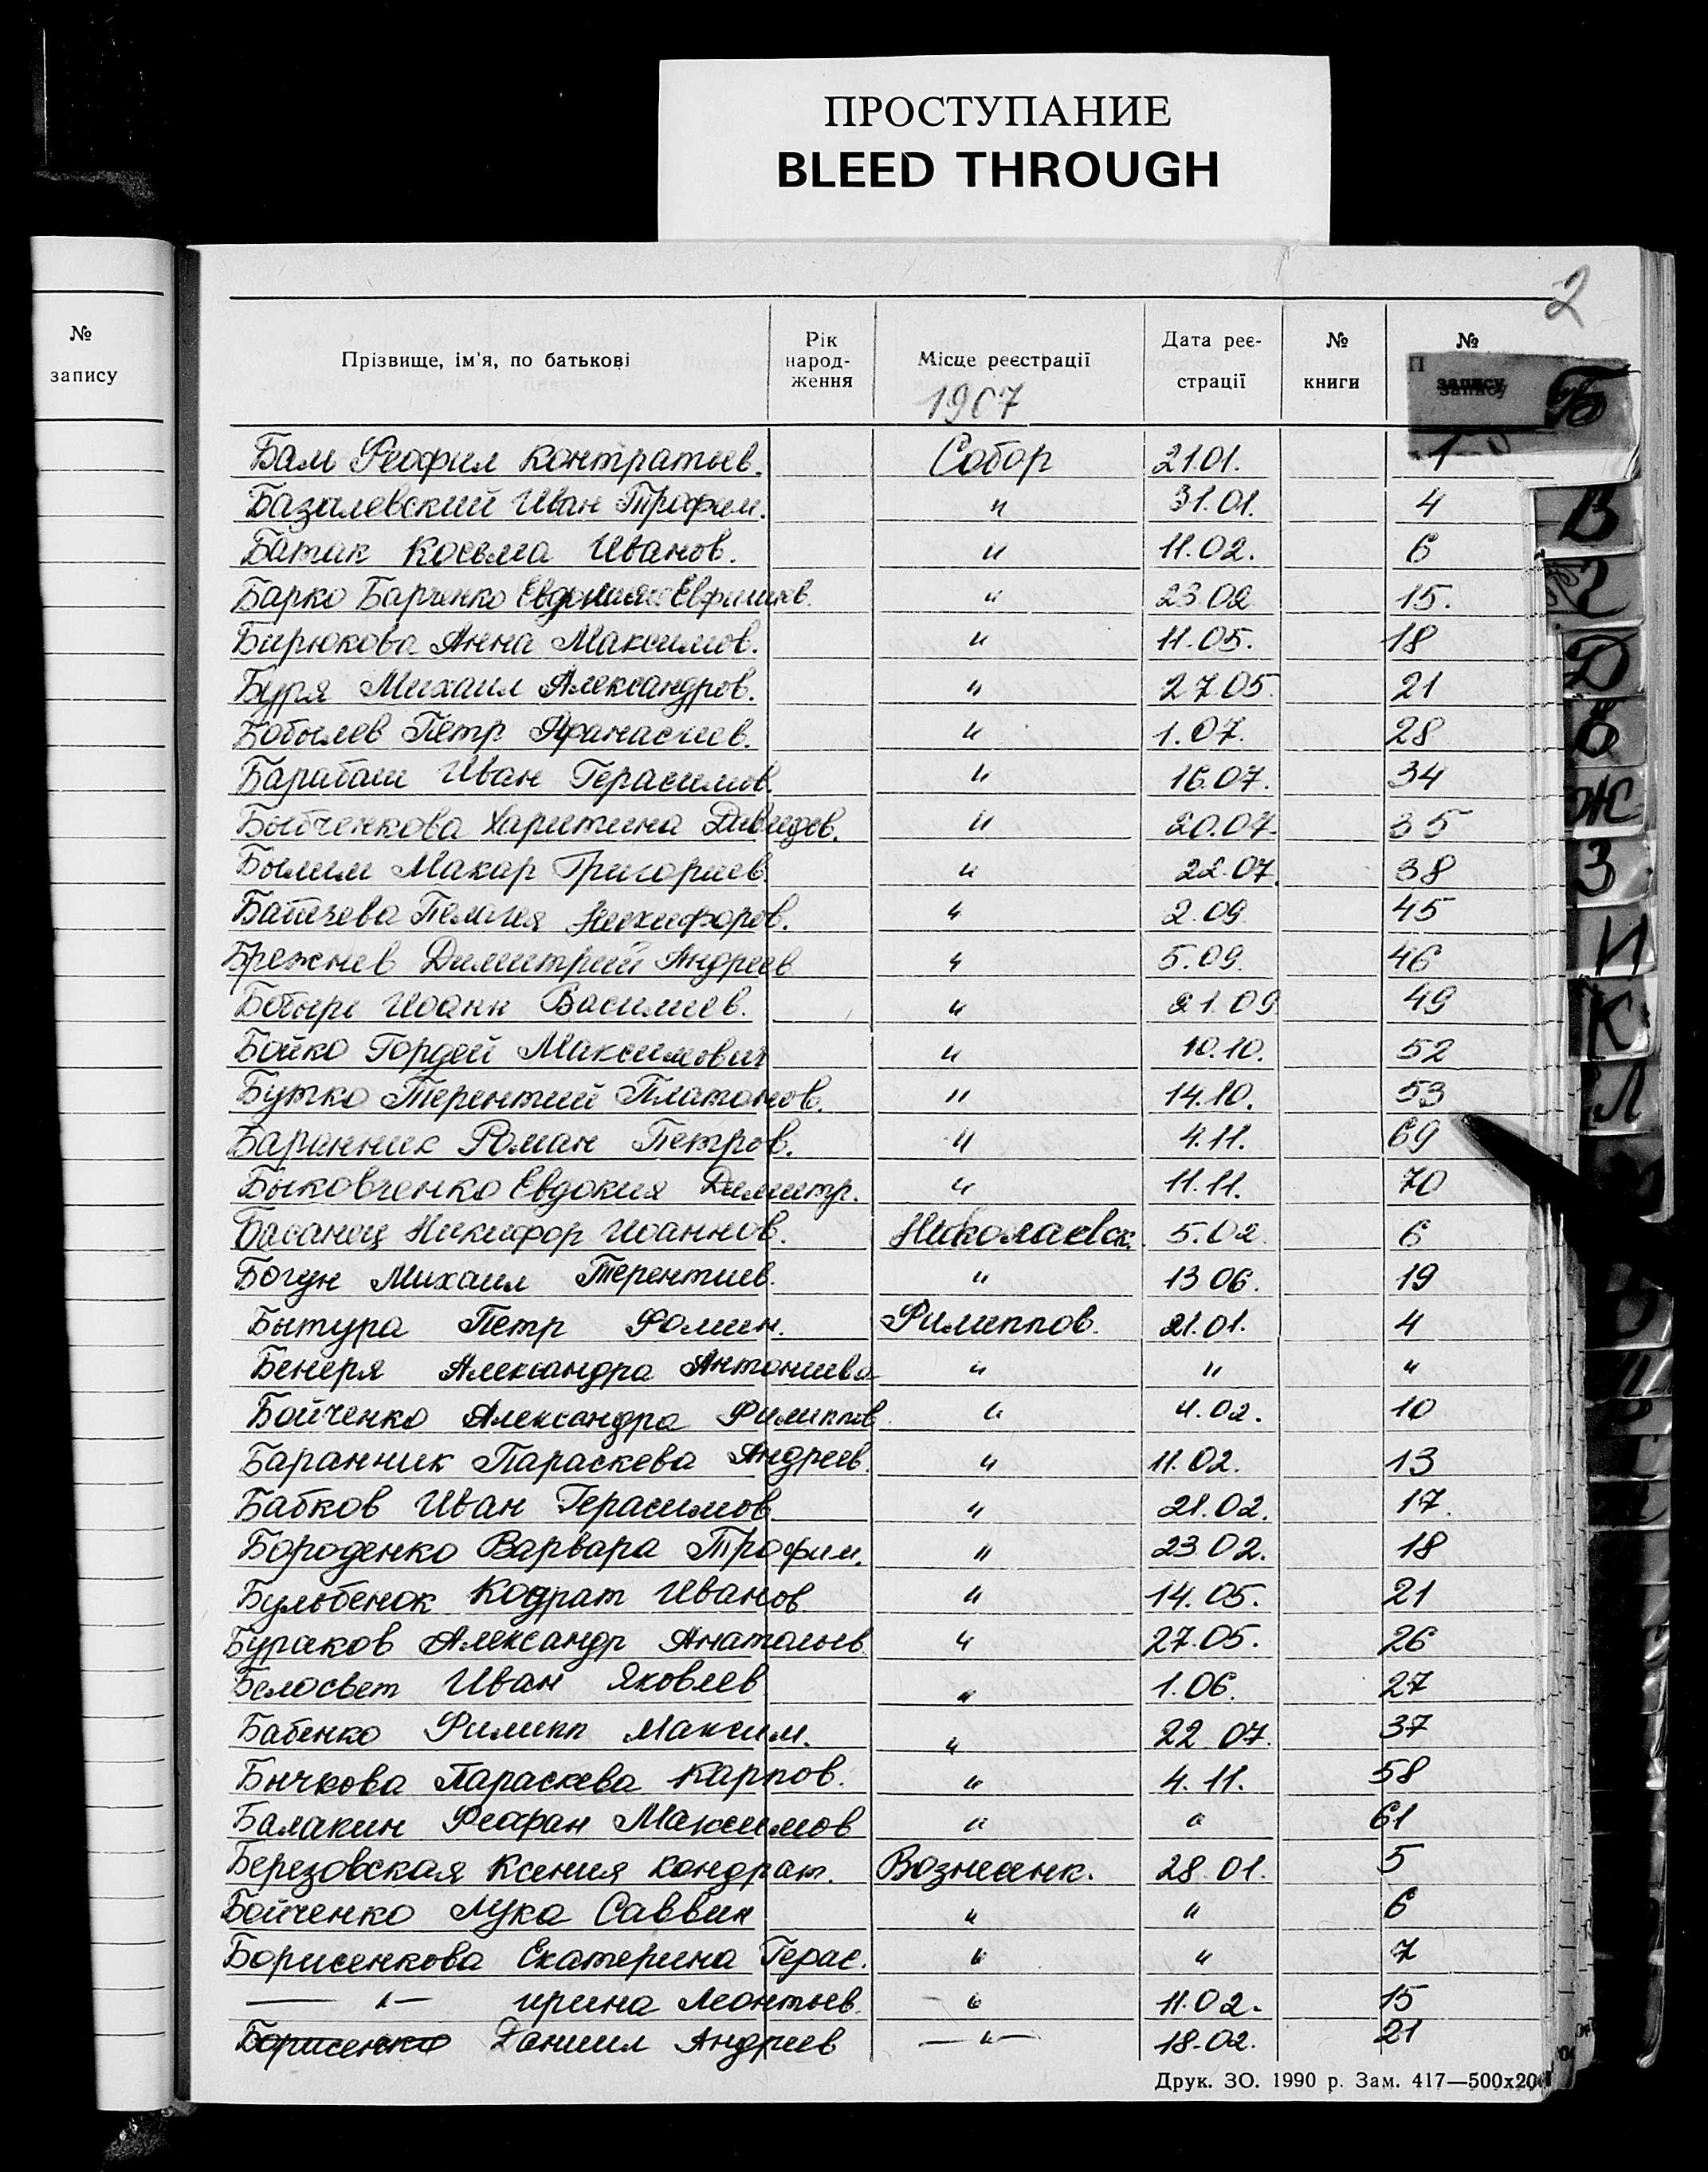 ПРОСТУПАНИЕ
BLEED THROUGH
2
№ запису
Прізвище, ім'я, по батькові Рік народ-ження Місце реєстрації Дата реє-страції № книги № запису
1907
Б
Баль Феофил Контратьев. Собор 21.01. 1
Базилевский Иван Трофим. " 31.01. 4
Батак Косьма Иванов. " 11.02. 6
Барко Барченко Евдокия Ефимиев. " 23.02 15.
Бирюкова Анна Максимов. " 11.05. 18
Буря Михаил Александров. " 27.05. 21
Бобылев Петр Афанасиев. " 1.07. 28
Барабаш Иван Герасимов. " 16.07. 34
Быбченкова Харитина Давидов. " 20.07. 35
Былим Макар Григориев. " 22.07. 38
Пелагия Никифоров. " 2.09. 45
Брежнев Димитрий Андреев " 5.09. 46
Иоанн Василиев. " 21.09 49
Бойко Гордей Максимович " 10.10. 52
Бутко Терентий Платонов. " 14.10. 53
Баранник Роман Петров. " 4.11. 69
Быковченко Евдокия Димитр. " 11.11. 70
Басанец Никифор Иоаннов. Николаевск. 5.02. 6
Богун Михаил Терентиев. " 13 06. 19
Бытура Петр Фомин. Филиппов. 21.01. 4
Бенеря Александра Антониева " " "
Бойченко Александра Филиппов. " 4.02. 10
Баранник Параскева Андреев. " 11.02. 13
Бабков Иван Герасимов. " 21.02. 17.
Бороденко Варвара Трофим. " 23 02. 18
Бульбенок Кодрат Иванов. " 14.05. 21
Бураков Александр Анатольев. " 27.05. 26
Белосвет Иван Яковлев " 1.06. 27
Бабенко Филипп Максим. " 22.07. 37
Бычкова Параскева Карпов. " 4.11. 58
Балакин Феофан Максимов " " 61
Березовская Ксения Кондрат. Вознесенк. 28.01. 5
Бойченко Лука Саввин " " 6
Борисенкова Екатерина Герас. " " 7
— " — ирина Леонтьев. — " 11.02. 15
Борисенко Даниил Андреев — " — 18.02. 21
Друк. ЗО. 1990 р. Зам. 417—500х20
В
Г
Д
Е
Ж
З
И
К
Л